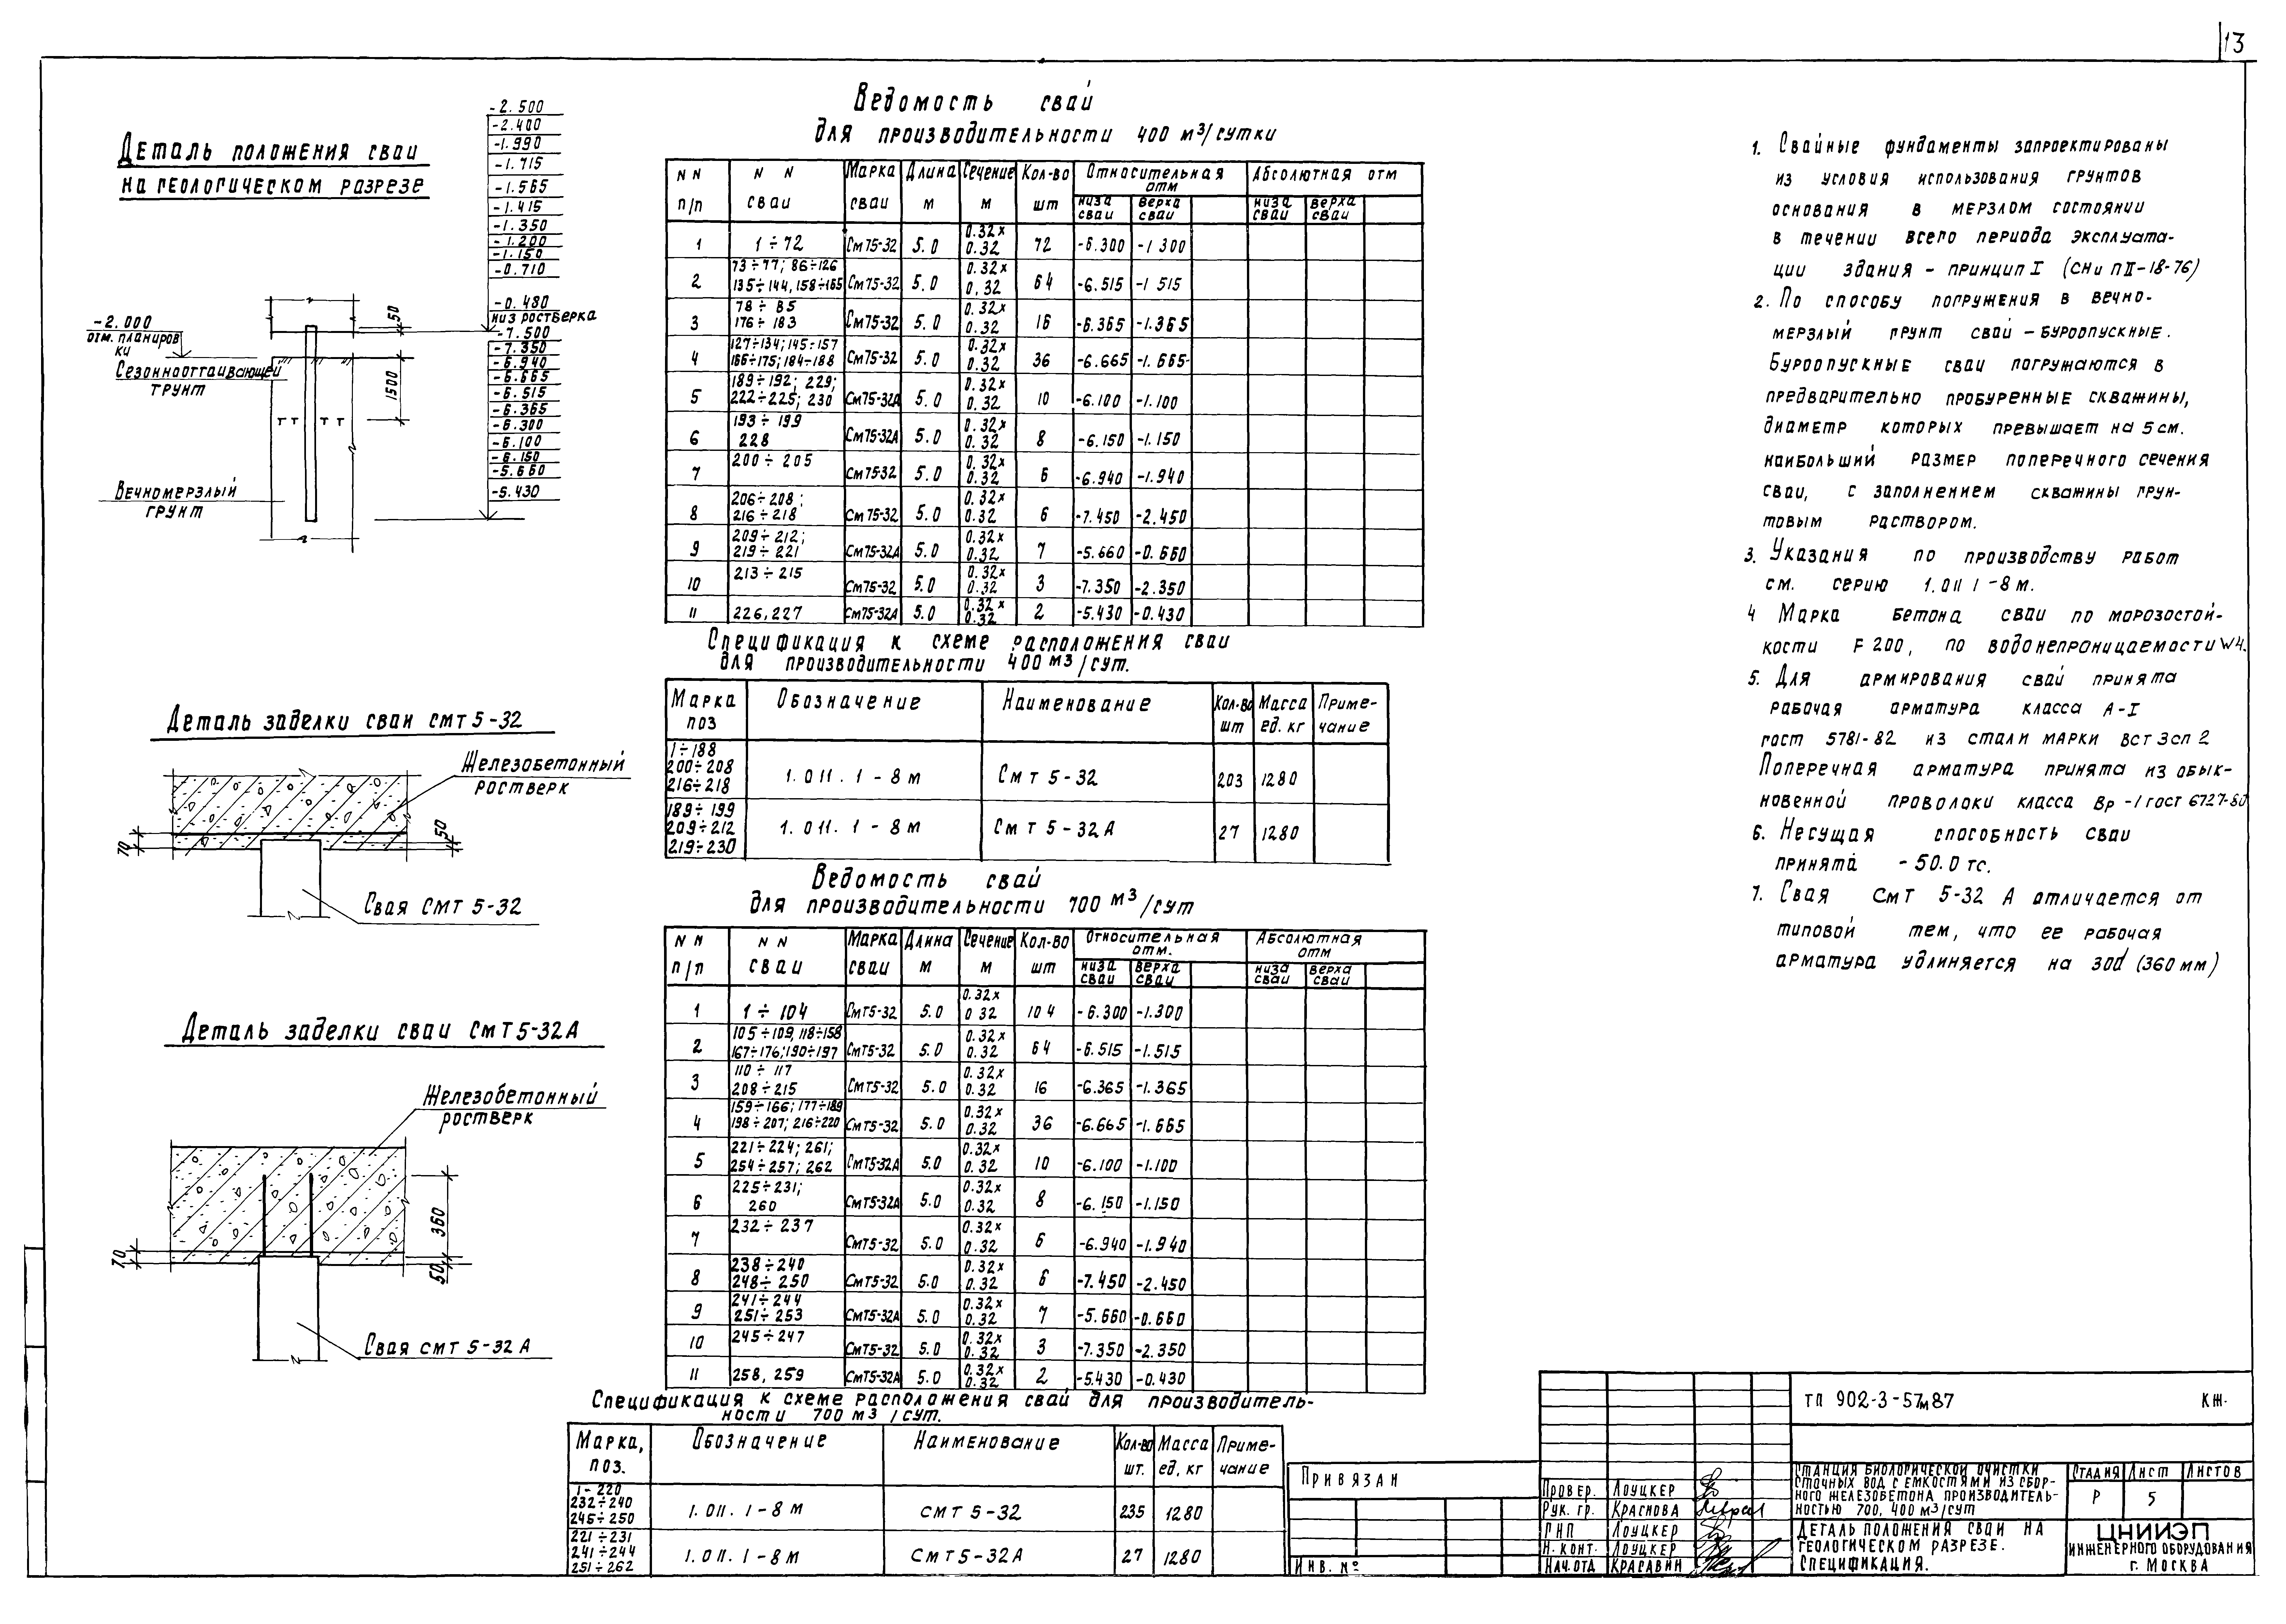 13
Деталь положения сваи
на геологическом разрезе
-2.500
-2.400
-1.990
-1.715
-1.565
-1.415
-1.350
-1.200
-1.150
-0.710
-0.480
низ ростверка
-7.500
-7.350
-6.940
-6.665
-6.515
-6.365
-6.300
-6.100
-6.150
-5.660
-5.430
50
1500
-2.000
отм. планиров
ки
Сезоннооттаивающей
грунт
Т Т Т Т
Вечномерзлый
грунт
Деталь заделки сваи СМТ 5-32
Железобетонный
ростверк
70
50
Свая СМТ 5-32
Деталь заделки сваи СмТ5-32А
Железобетонный
ростверк
360
70
50
Свая СМТ 5-32 А
Ведомость свай
для производительности 400 м³/сутки
NN п/п | NN сваи | Марка сваи | Длина м | Сечение м | Кол-во шт | Относительная отм | Абсолютная отм
низа сваи | верха сваи | низа сваи | верха сваи
1 | 1÷72 | См75-32 | 5.0 | 0.32х 0.32 | 72 | -6.300 | -1 300
2 | 73÷77; 86÷126 135÷144, 158÷165 | См75-32 | 5.0 | 0.32х 0.32 | 64 | -6.515 | -1 515
3 | 78÷85 176÷183 | См75-32 | 5.0 | 0.32х 0.32 | 16 | -6.365 | -1.365
4 | 127÷134; 145÷157 166÷175; 184÷188 | См75-32 | 5.0 | 0.32х 0.32 | 36 | -6.665 | -1.665
5 | 189÷192; 229; 222÷225; 230 | См75-32А | 5.0 | 0.32х 0.32 | 10 | -6.100 | -1.100
6 | 193÷199 228 | См75-32А | 5.0 | 0.32х 0.32 | 8 | -6.150 | -1.150
7 | 200÷205 | См75-32 | 5.0 | 0.32х 0.32 | 6 | -6.940 | -1.940
8 | 206÷208; 216÷218 | См75-32 | 5.0 | 0.32х 0.32 | 6 | -7.450 | -2.450
9 | 209÷212; 219÷221 | См75-32А | 5.0 | 0.32х 0.32 | 7 | -5.660 | -0.660
10 | 213÷215 | См75-32 | 5.0 | 0.32х 0.32 | 3 | -7.350 | -2.350
11 | 226, 227 | См75-32А | 5.0 | 0.32х 0.32 | 2 | -5.430 | -0.430
Спецификация к схеме расположения сваи
для производительности 400 м3/сут.
Марка поз | Обозначение | Наименование | Кол-во шт | Масса ед. кг | Приме-чание
1÷188 200÷208 216÷218 | 1.011.1-8м | СмТ 5-32 | 203 | 1280
189÷199 209÷212 219÷230 | 1.011.1-8м | СмТ 5-32А | 27 | 1280
Ведомость свай
для производительности 700 м³/сут
NN п/п | NN сваи | Марка сваи | Длина м | Сечение м | Кол-во шт | Относительная отм. | Абсолютная отм
низа сваи | верха сваи | низа сваи | верха сваи
1 | 1÷104 | СмТ5-32 | 5.0 | 0.32х 0 32 | 104 | -6.300 | -1.300
2 | 105÷109, 118÷158 167÷176; 190÷197 | СмТ5-32 | 5.0 | 0.32х 0.32 | 64 | -6.515 | -1.515
3 | 110÷117 208÷215 | СмТ5-32 | 5.0 | 0.32х 0.32 | 16 | -6.365 | -1.365
4 | 159÷166; 177÷189 198÷207; 216÷220 | СмТ5-32 | 5.0 | 0.32х 0.32 | 36 | -6.665 | -1.665
5 | 221÷224; 261; 254÷257; 262 | СмТ5-32А | 5.0 | 0.32х 0.32 | 10 | -6.100 | -1.100
6 | 225÷231; 260 | СмТ5-32А | 5.0 | 0.32х 0.32 | 8 | -6.150 | -1.150
7 | 232÷237 | СмТ5-32 | 5.0 | 0.32х 0.32 | 6 | -6.940 | -1.940
8 | 238÷240 248÷250 | СмТ5-32 | 5.0 | 0.32х 0.32 | 6 | -7.450 | -2.450
9 | 241÷244 251÷253 | СмТ5-32А | 5.0 | 0.32х 0.32 | 7 | -5.660 | -0.660
10 | 245÷247 | СмТ5-32 | 5.0 | 0.32х 0.32 | 3 | -7.350 | -2.350
11 | 258, 259 | СмТ5-32А | 5.0 | 0.32х 0.32 | 2 | -5.430 | -0.430
Спецификация к схеме расположения свай для производитель-
ности 700 м3 /сут.
Марка, поз. | Обозначение | Наименование | Кол-во шт. | Масса ед, кг | Приме-чание
1-220 232÷240 245÷250 | 1.011.1-8м | СМТ 5-32 | 235 | 1280
221÷231 241÷244 251÷262 | 1.011.1-8м | СМТ5-32А | 27 | 1280
1. Свайные фундаменты запроектированы
из условия использования грунтов
основания в мерзлом состоянии
в течении всего периода эксплуата-
ции здания - принцип I (СНиПII-18-76)
2. По способу погружения в вечно-
мерзлый грунт свай - буроопускные.
Буроопускные сваи погружаются в
предварительно пробуренные скважины,
диаметр которых превышает на 5см.
наибольший размер поперечного сечения
сваи, с заполнением скважины грун-
товым раствором.
3. Указания по производству работ
см. серию 1.011 1-8м.
4 Марка бетона сваи по морозостой-
кости F200, по водонепроницаемости W4.
5. Для армирования свай принята
рабочая арматура класса А-I
гост 5781-82 из стали марки Вст3сп2
Поперечная арматура принята из обык-
новенной проволоки класса Вр-I гост 6727-80
6. Несущая способность сваи
принята - 50.0 тс.
7. Свая СмТ 5-32 А отличается от
типовой тем, что ее рабочая
арматура удлиняется на 30d (360 мм)
Привязан
Инв. №
ТП 902-3-57м87 КЖ.
Провер. Лоуцкер
Рук. гр. Краснова
ГИП Лоуцкер
Н. конт. Лоуцкер
Нач. отд Красавин
Станция биологической очистки
сточных вод с емкостями из сбор-
ного железобетона производитель-
ностью 700, 400 м³/сут
Стадия Лист Листов
Р 5
Деталь положения сваи на
геологическом разрезе.
Спецификация.
ЦНИИЭП
инженерного оборудования
г. Москва